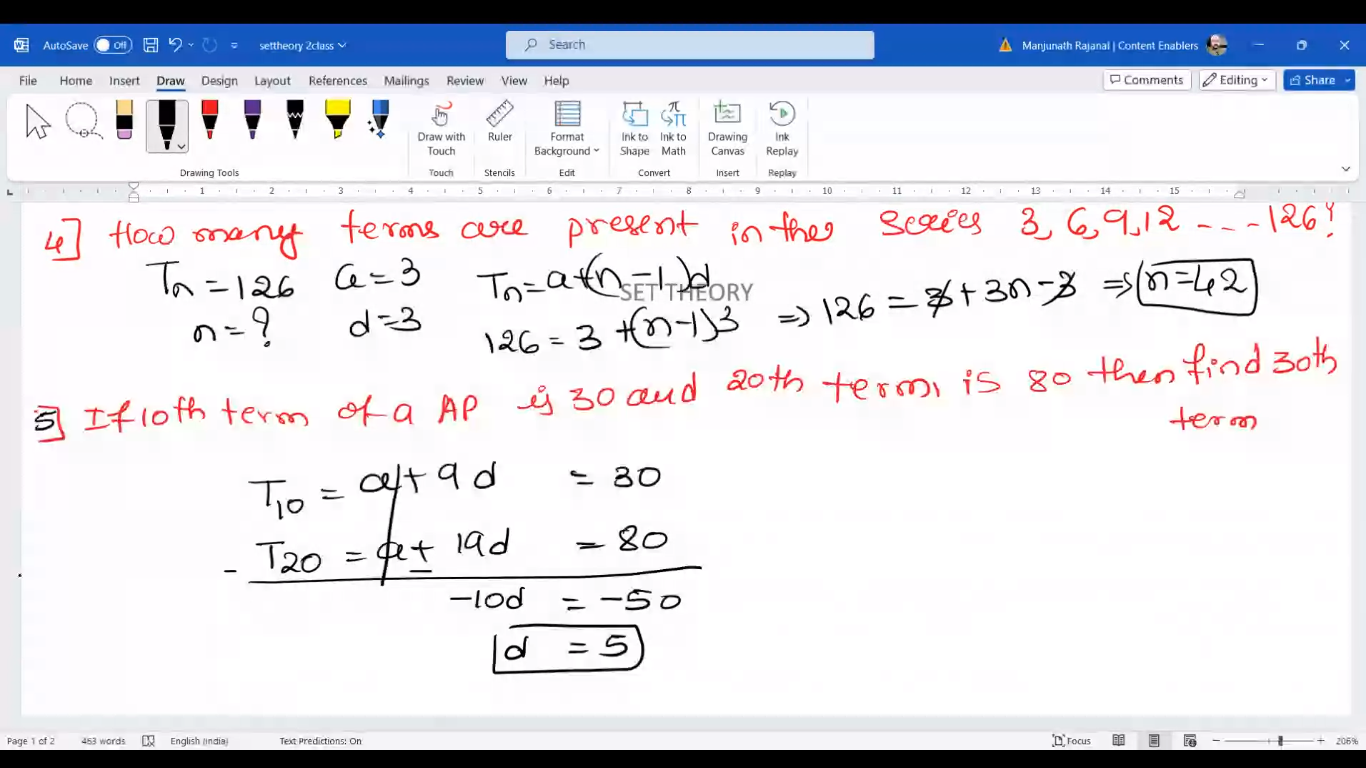 AutoSave Off settheory 2class Search Manjunath Rajanal | Content Enablers
File Home Insert Draw Design Layout References Mailings Review View Help Comments Editing Share
Draw with Touch Ruler Format Background Ink to Shape Ink to Math Drawing Canvas Ink Replay
Drawing Tools Touch Stencils Edit Convert Insert Replay
1 2 3 4 5 6 7 8 9 10 11 12 13 14 15
4] How many terms are present in the series 3, 6, 9, 12 - - - - 126?
Tn = 126 a = 3 Tn = a + (n - 1) d
SET THEORY
n = ? d = 3 126 = 3 + (n - 1) 3 => 126 = 3 + 3n - 3 => n = 42
5] If 10th term of a AP is 30 and 20th term, is 80 then find 30th
term
T10 = a + 9d = 30
- T20 = a + 19d = 80
-10d = -50
d = 5
Page 1 of 2 463 words English (India) Text Predictions: On Focus 206%